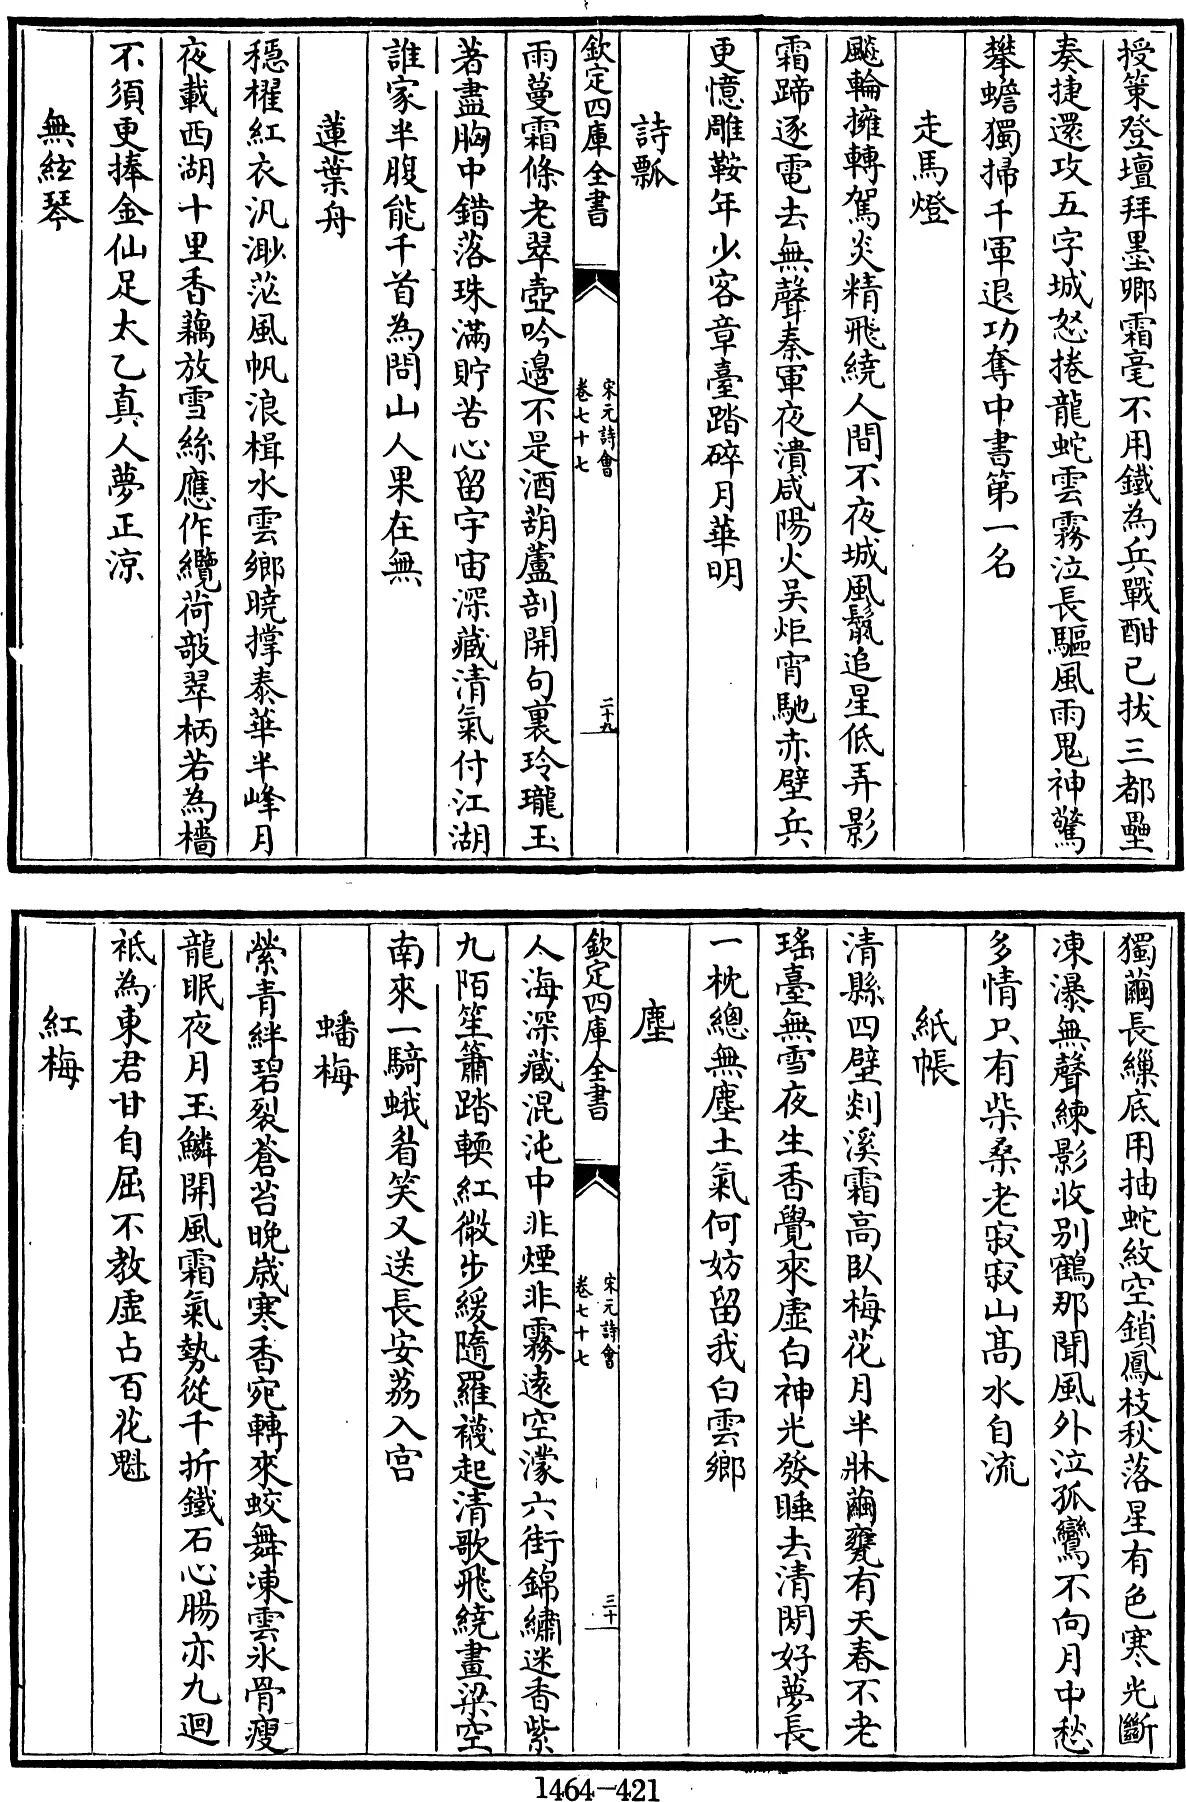 授策登壇拜墨卿霜毫不用鐵為兵戰酣已拔三都壘
奏捷還攻五字城怒捲龍蛇雲霧泣長驅風雨鬼神驚
攀蟾獨掃千軍退功奪中書第一名
走馬燈
飈輪擁轉駕炎精飛繞人間不夜城風鬛追星低弄影
霜蹄逐電去無聲秦軍夜潰咸陽火吴炬宵馳赤壁兵
更憶雕鞍年少客章臺踏碎月華明
詩瓢
欽定四庫全書
宋元詩會
卷七十七
二十九
雨蔓霜條老翠壺吟邊不是酒葫蘆剖開句裏玲瓏玉
著盡胸中錯落珠滿貯苦心留宇宙深藏清氣付江湖
誰家半腹能千首為問山人果在無
蓮葉舟
穩櫂紅衣汎渺茫風帆浪楫水雲鄉曉撑泰華半峰月
夜載西湖十里香藕放雪絲應作纜荷敧翠柄若為檣
不須更捧金仙足太乙真人夢正涼
無絃琴
獨繭長繅底用抽蛇紋空鎖鳳枝秋落星有色寒光斷
凍瀑無聲練影收别鶴那聞風外泣孤鸞不向月中愁
多情只有柴桑老寂寂山髙水自流
紙帳
清縣四壁剡溪霜高臥梅花月半牀繭甕有天春不老
瑤臺無雪夜生香覺來虛白神光發睡去清閑好夢長
一枕總無塵土氣何妨留我白雲鄉
塵
欽定四庫全書
宋元詩會
卷七十七
三十
人海深藏混沌中非煙非霧遠空濛六街錦繡迷香紫
九陌笙簫踏輭紅微步緩隨羅襪起清歌飛繞畫梁空
南來一騎蛾眉笑又送長安荔入宫
蟠梅
縈青絆碧裂蒼苔晚歲寒香宛轉來蛟舞凍雲氷骨瘦
龍眠夜月玉鱗開風霜氣勢從千折鐵石心腸亦九迴
祗為東君甘自屈不教虛占百花魁
紅梅
1464-421